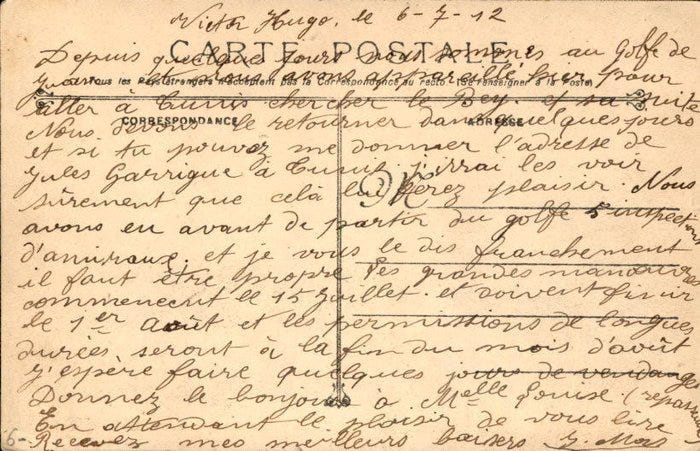 Victor Hugo. le 6-7-12
CARTE POSTALE
Depuis quelques jours nous sommes au golfe de
Tous les Pays étrangers n'acceptent pas la Correspondance au recto (Se renseigner à la Poste)
Juan et nous avons appareillé hier pour
aller à Tunis chercher le Bey et sa suite
CORRESPONDANCE
ADRESSE
Nous devons le retourner dans quelques jours
et si tu pouvez me donner l'adresse de
Jules Garrigue à Tunis j'irrai les voir
sûrement que celà ferez plaisir. Nous
avons eu avant de partir du golfe 5 inspections
d'amiraux. et je vous le dis franchement
il faut être propre Les grandes manœuvres
commencent le 15 Juillet. et doivent finir
le 1er Août et les permissions de longues
durées seront à la fin du mois d'août
J'espère faire quelques jours de vendange
Donnez le bonjour à Melle Louise (repas
En attendant le plaisir de vous lire
6- Recevez mes meilleurs baisers